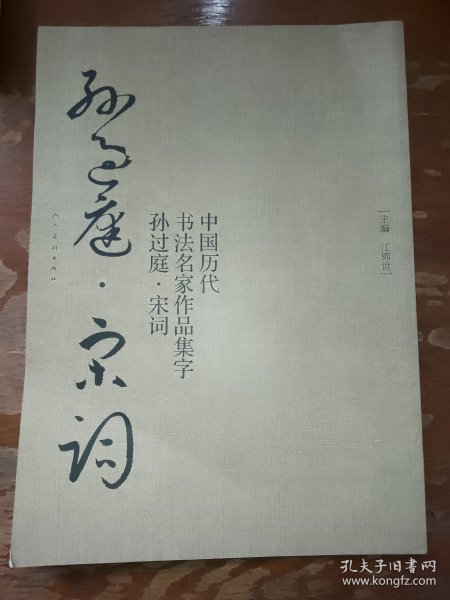 孙过庭·宋词
人民美术出版社
中国历代
书法名家作品集字
孙过庭·宋词
[主编 江锦世]
孔夫子旧书网
www.kongfz.com